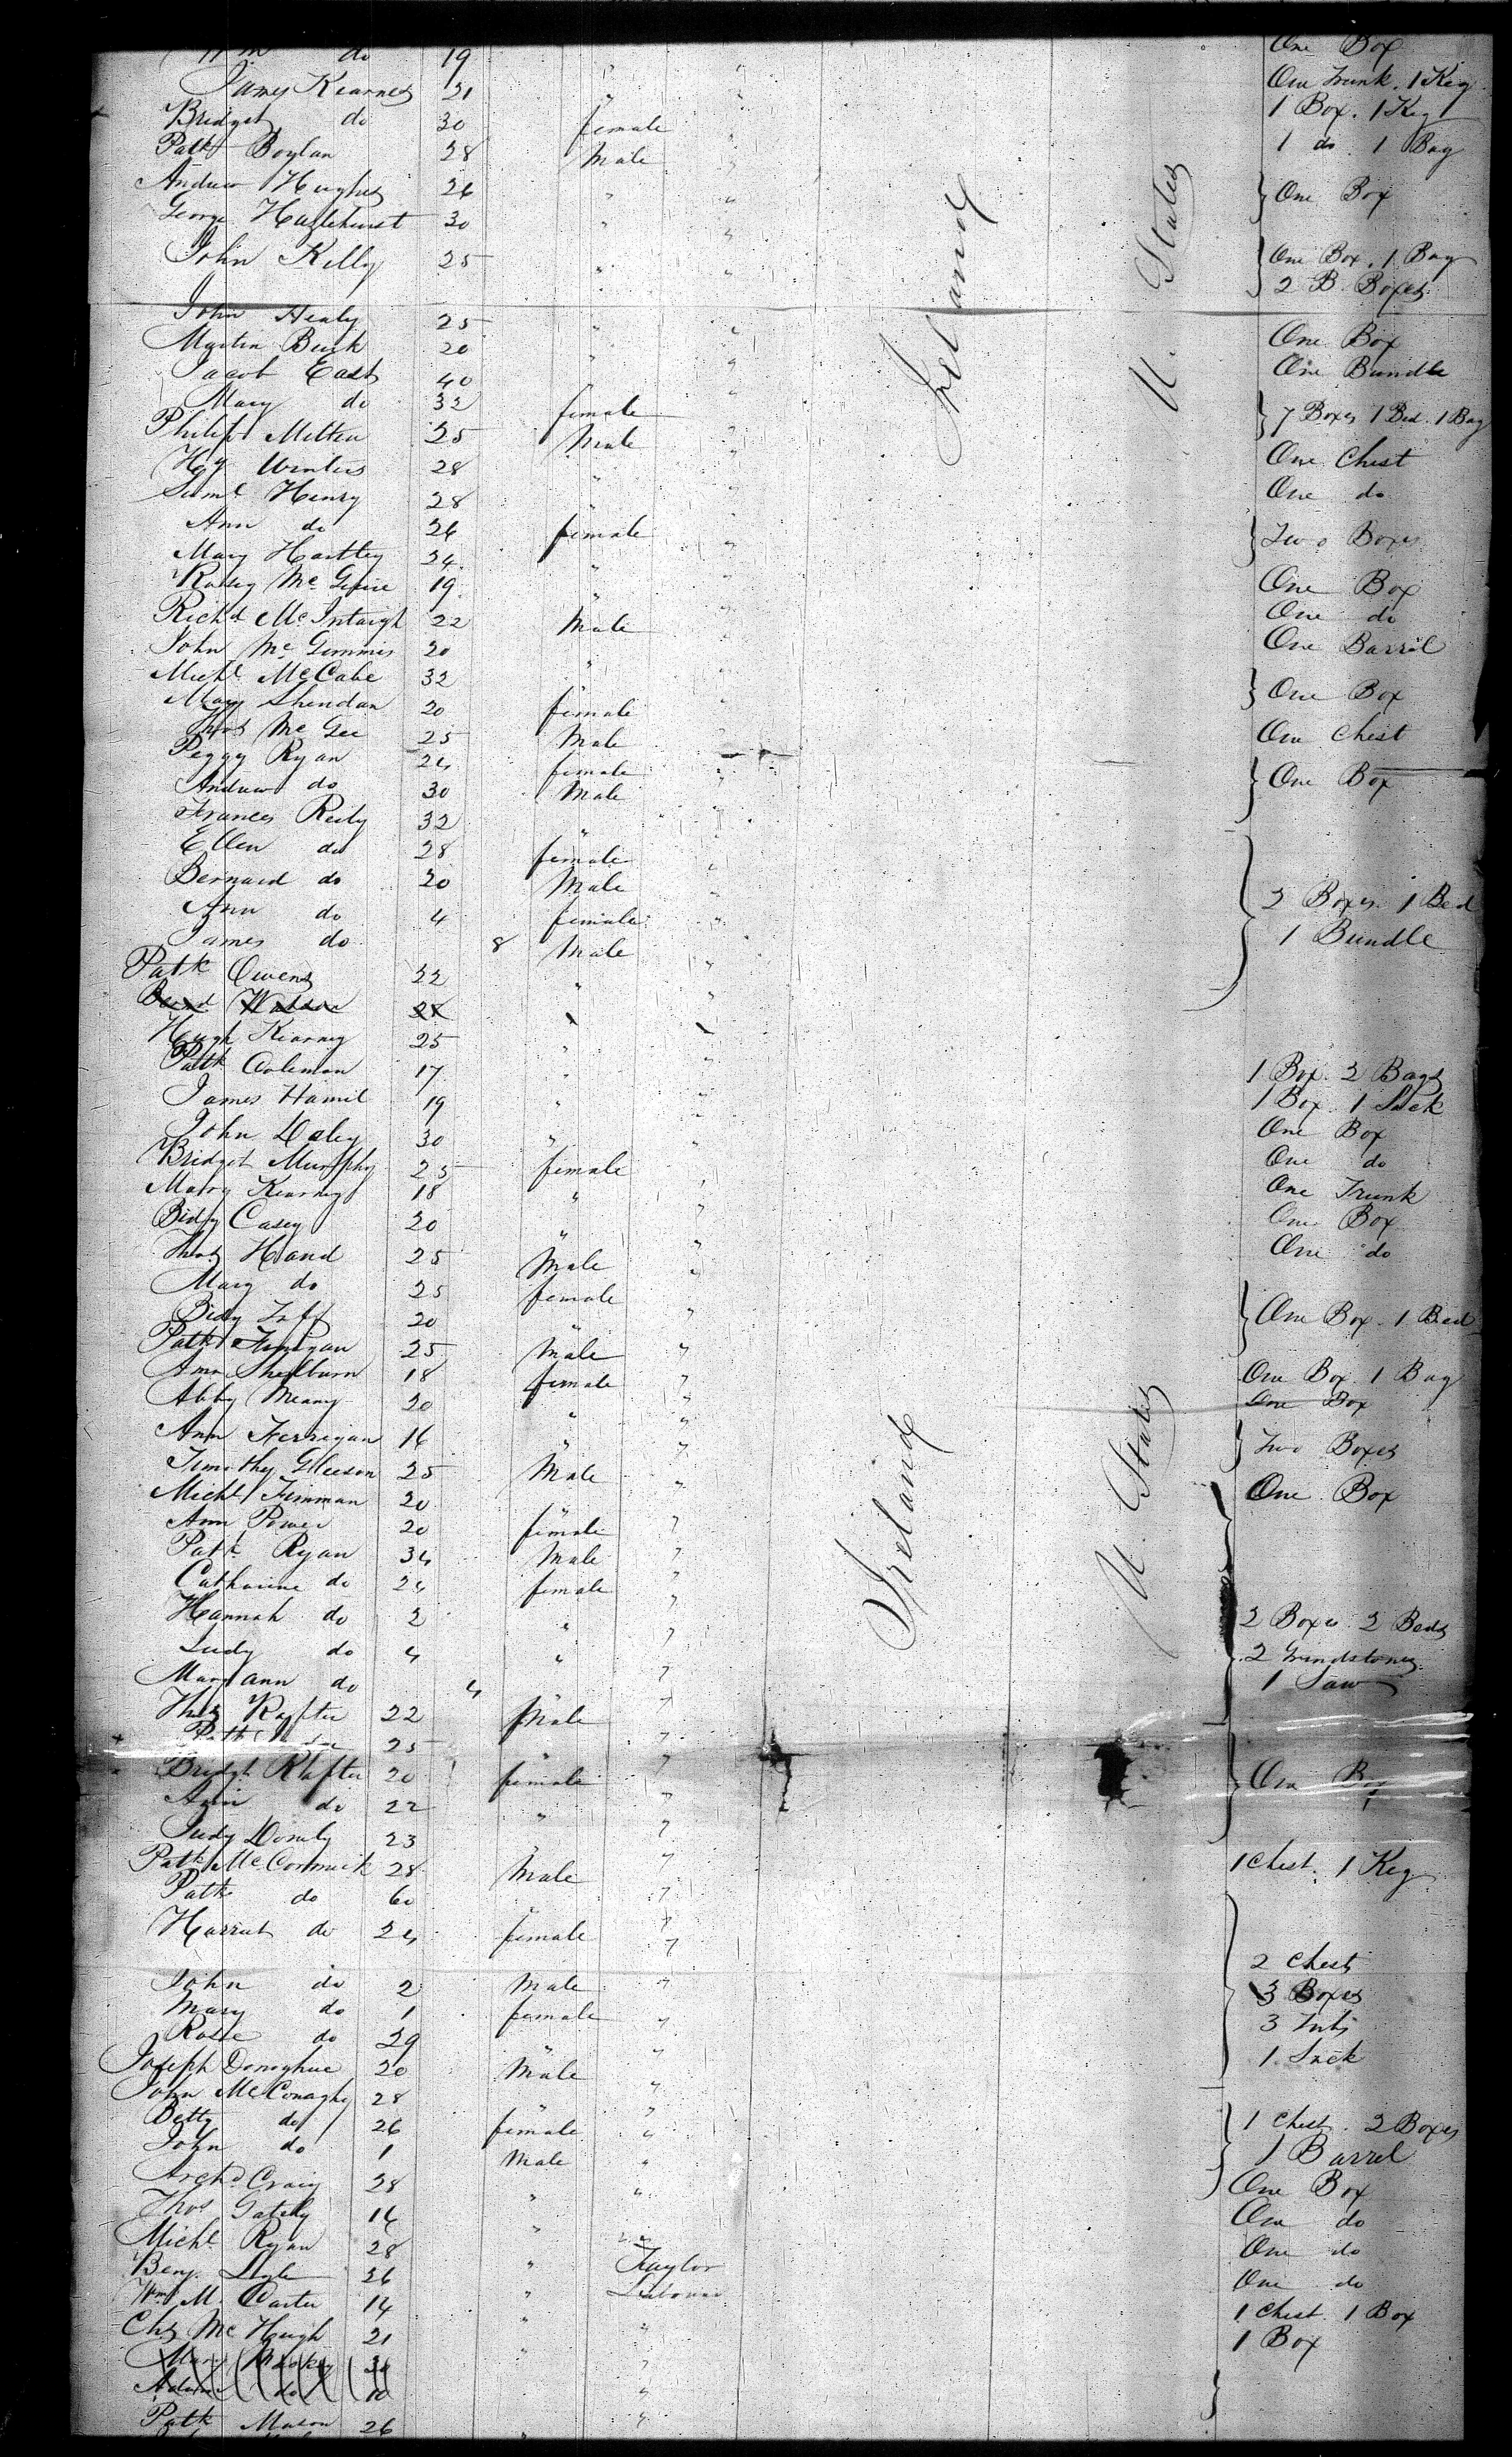 Wm do 19 " " One Box
James Kearney 21 " " One Trunk. 1 Keg
Bridget do 30 female " 1 Box. 1 Keg
Patk Boylan 28 Male " 1 do. 1 Bag
Andrew Hughes 26 " " One Box
George Hazlehurst 30 " "
John Kelly 25 " One Box. 1 Bag
2 B. Boxes
John Healy 25 " " One Box
Martin Burk 20 " " One Bundle
Jacob East 40 "
Mary do 32 female " 7 Boxes 1 Bed. 1 Bag
Philip Mitten 25 Male "
Hy Winters 28 " One Chest
Saml Henry 28 " " One do
Ann do 26 female " Two Boxes
Mary Hartley 24 "
Rosey Mc Guire 19 " One Box
Richd McIntaigh 22 Male " One do
John Mc Gimmis 20 " One Barrel
Michl McCabe 32 " One Box
Mary Sheridan 20 female "
Thos Mc Gee 25 Male " One Chest
Peggy Ryan 24 female One Box
Andrew do 30 Male "
Frances Reily 32 "
Ellen do 28 female "
Bernard do 20 Male " 3 Boxes. 1 Bed
Ann do 4 female "
James do 8 Male " 1 Bundle
Patk Owens 22 " "
28
Hugh Kearney 25 " "
Patk Coleman 17 " " 1 Box. 2 Bags
James Hamil 19 " " 1 Box. 1 Sack
John Daley 30 " " One Box
Bridget Murphy 25 female One do
Mary Kearney 18 " " One Trunk
Bidy Casey 20 " " One Box
Thos Hand 25 Male " One do
Mary do 25 female
Bidy 20 " " One Box. 1 Bed
Patk Finigan 25 Male "
Ann Shelburn 18 female " One Box. 1 Bag
Abby Meany 20 " " One Box
Ann Ferrigan 16 " " Two Boxes
Timothy Gleeson 25 Male "
Michl Finman 20 One Box
Ann Power 20 female "
Patk Ryan 34 Male "
Catharine do 24 female "
Hannah do 2 " " 2 Boxes. 2 Beds
Judy do 4 " " 2 Grindstones
Mary ann do 4 " 1 Saw
Thos Rafter 22 Male "
Patk 25 " "
Bridgt Rafter 20 female " One Box
Ann do 22 " "
Judy Donely 23 " "
Patk McCormick 28 Male " 1 Chest. 1 Keg
Patk do 60 "
Harriet do 24 female "
2 Chests
John do 2 Male " 3 Boxes
Mary do 1 female " 3 Tubs
Rose do 29 " " 1 Sack
Joseph Donoghue 20 Male "
John McConaghy 28 " "
Betty do 26 female " 1 Chest. 2 Boxes
John do 1 Male " 1 Barrel
Archd Craig 28 " " One Box
Thos Gately 16 " One do
Michl Ryan 28 " One do
Benj. Lyle 36 " Taylor One do
Wm M. Carter 14 " Labourer 1 Chest. 1 Box
Chs Mc Hugh 21 " " 1 Box
Mary
do 10 "
Patk Mason 26 "
Ireland
U. States
Ireland
U. States